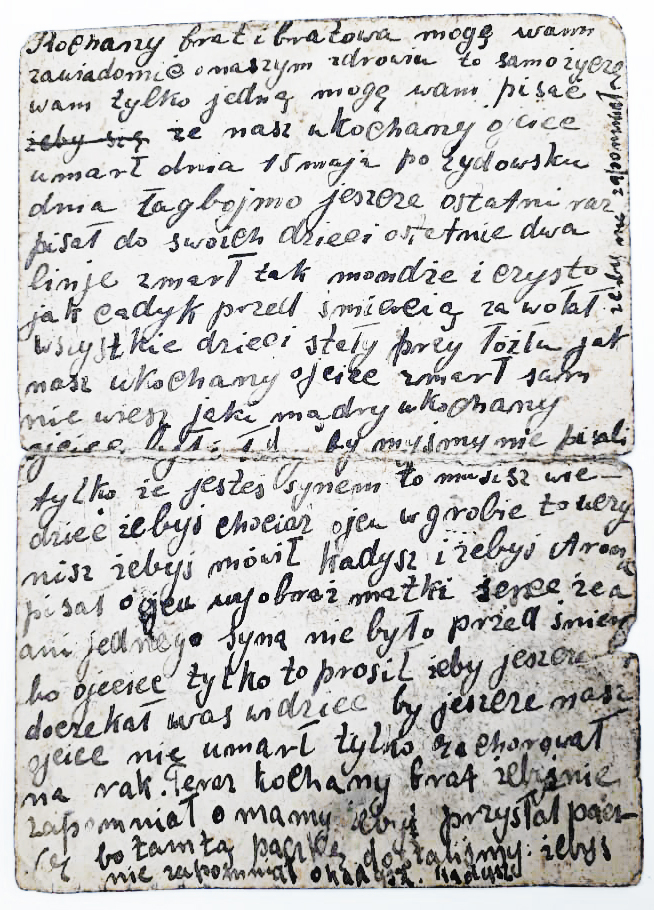 Kochany brat i bratowa mogę wam
zawiadomic o naszym zdrowiu to samo życzę
wam tylko jedną mogę wam pisac
żeby się że nasz ukochany ojcec
umarł dnia 15 maja po żydowsku
dnia łagbojmo jeszcze ostatni raz
pisał do swoich dzieci ostatnie dwa
linje zmarł tak mondże i czysto
jak cadyk przed śmiercią zawołał
wszystkie dzieci stały przy łóżku jak
nasz ukochany ojcec zmarł sam
nie wiesz jaki mądry ukochany
ojcec był by myśmy nie pisali
tylko że jesteś synem to musisz wie-
dzieć żebyś chociaż ojcu w grobie to uczy
nisz żebyś mówił kadysz i żebyś
pisał ojcu wyobraź matki serce że a
ani jednego syna nie było przed śmier
bo ojcec tylko to prosił żeby jeszcze
doczekał was widziec by jeszcze nasz
ojcec nie umarł tylko zachorował
na rak. Teraz kochany brat żebyśnie
zapomniał o mamy żebyś przysłał pacz-
kę bo tamtą paczkę dostaliśmy. żebyś
nie zapomniał o kadysz. kadysz
żebyś nie zapomniał